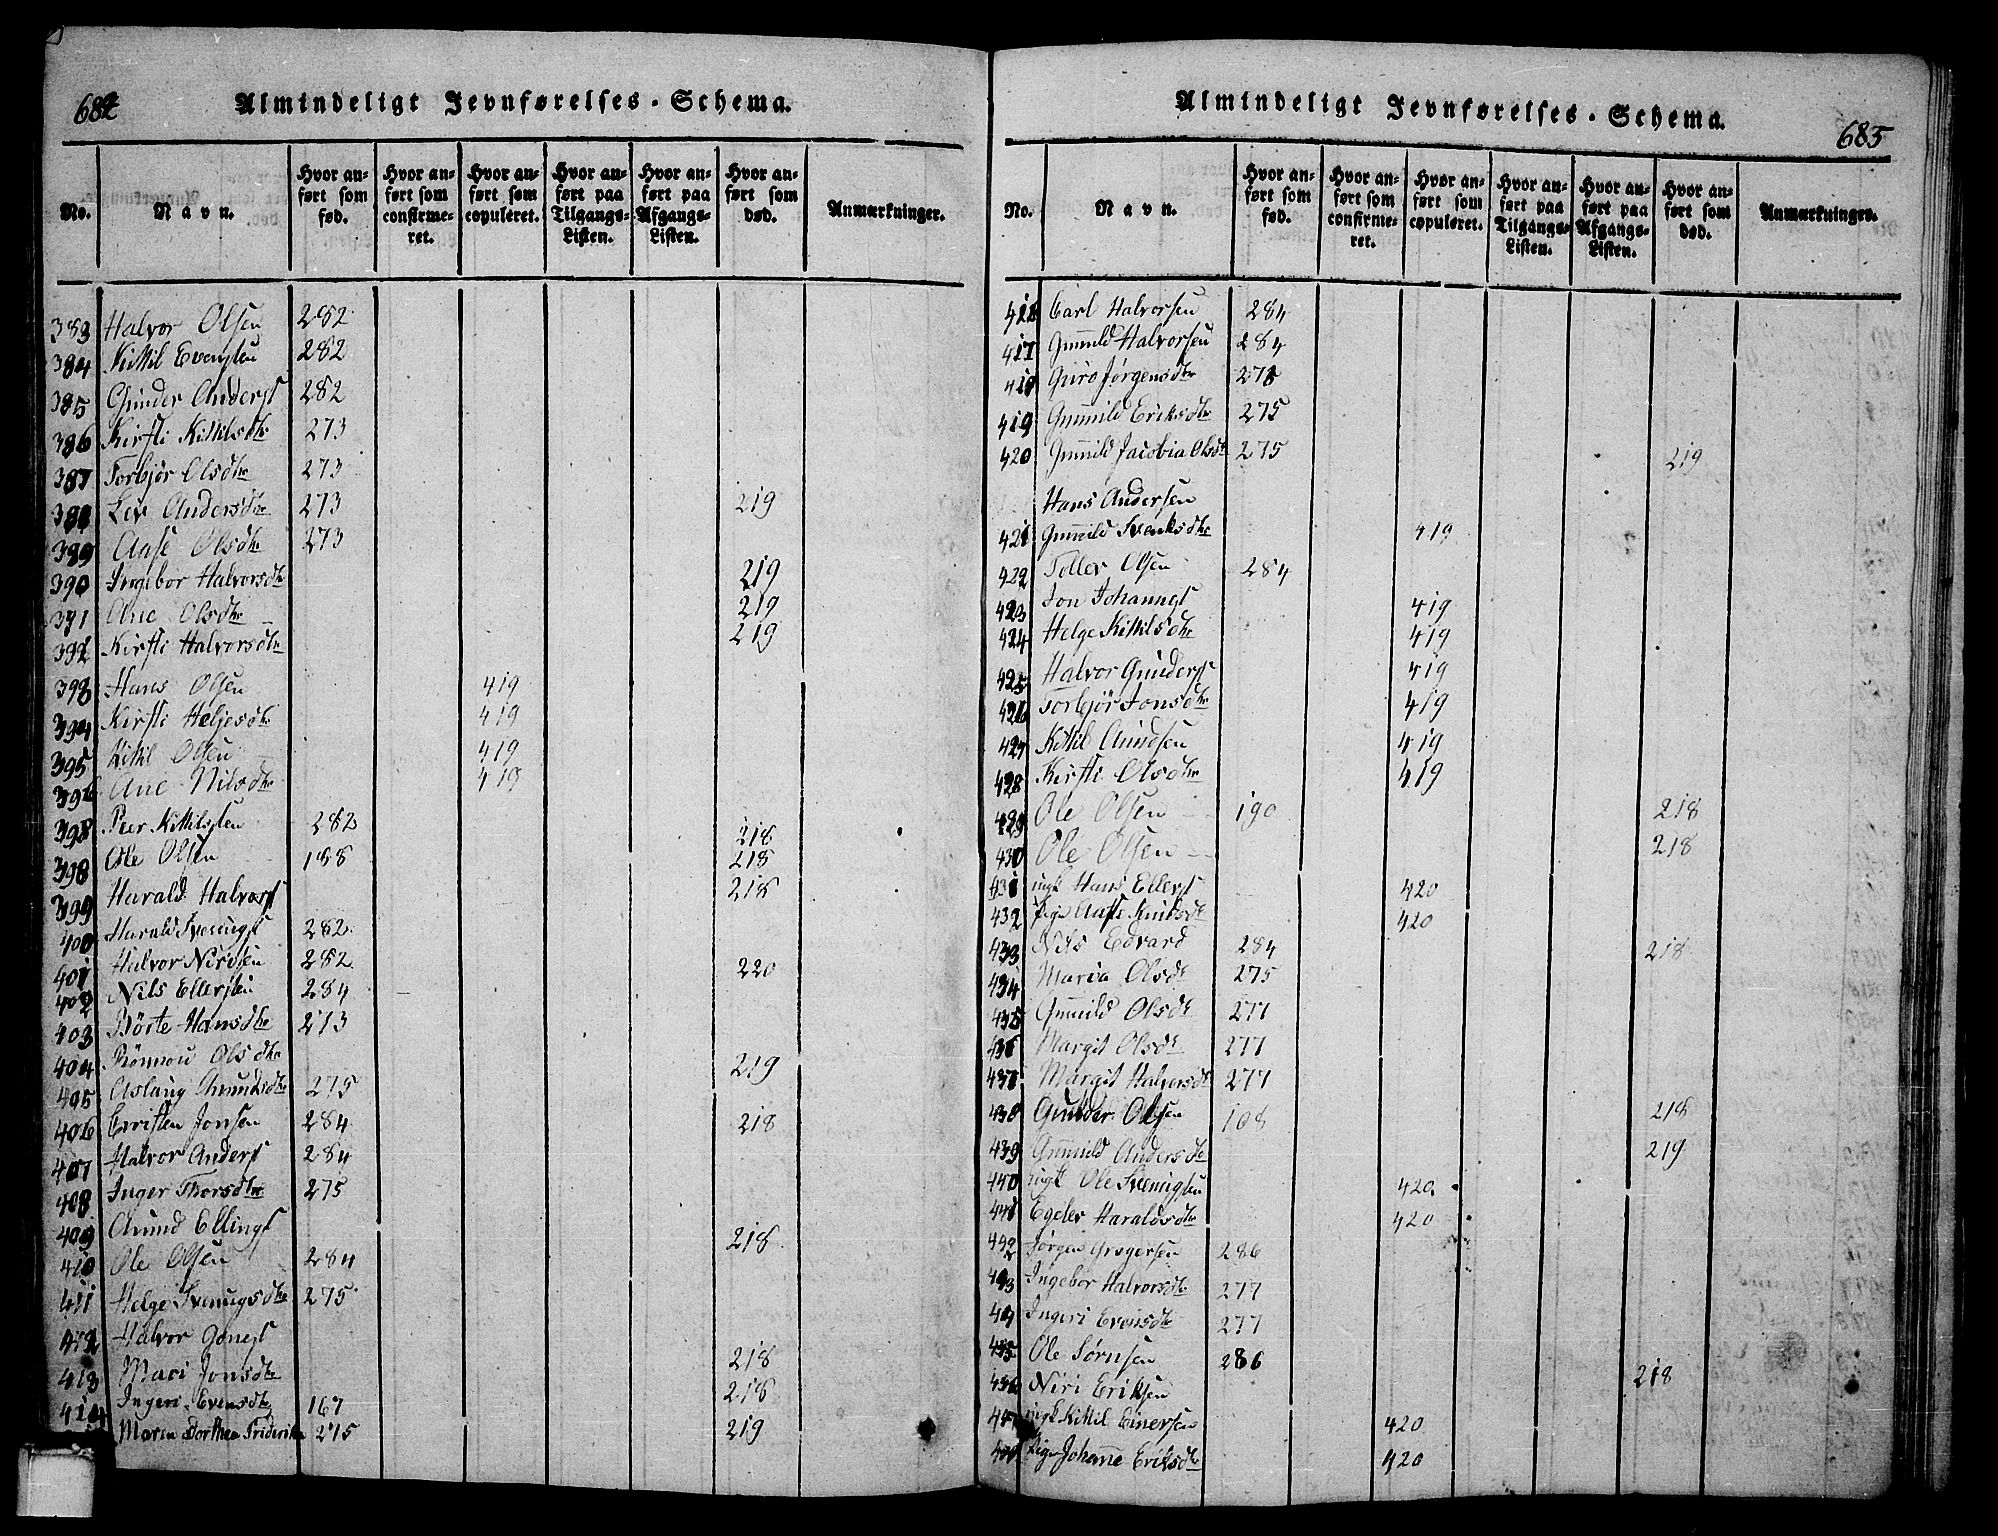 682
Almindeligt Jevnførelses-Schema.
No. Navn. Hvor anført som fød. Hvor anført som confirmeret. Hvor anført som copuleret. Hvor anført paa Tilgangs-Listen. Hvor anført paa Afgangs-Listen. Hvor anført som død. Anmærkninger.
383 Halvor Olsen 282
384 Kittil Evensen 282
385 Gunder Anders 282
386 Kirsti Kittilsdtr 273
387 Torbjør Olsdtr 273
388 Lev Andersdtr 273 219
389 Aase Olsdtr 273
390 Ingebor Halvorsdtr 219
391 Ane Olsdtr 219
392 Kirsti Halvorsdtr 219
393 Hans Olsen 419
394 Kirsti Heljesdtr 419
395 Kittil Olsen 419
396 Ane Nilsdtr 419
398 Peer Kittilsen 282 218
398 Ole Olsen 188 218
399 Harald Halvors 218
400 Harald Svenings 282
401 Halvor 282 220
402 Nils Ellersen 284
403 Börte Hansdtr 273
404 Rönnou Olsdtr 219
405 Aslaug Amundsdtr 275
406 Cristen Jonsen 284 218
407 Halvor Anders 284
408 Inger Thorsdtr 275
409 Amund Ellings 218
410 Ole Olsen 284
411 Helge Sveningsdtr 275
412 Halvor Jones 218
413 Mari Jonsdtr 218
414 Ingeri Evensdtr 167
Maren Dorthea Friderika 275 219
685
Almindeligt Jevnførelses-Schema.
No. Navn. Hvor anført som fød. Hvor anført som confirmeret. Hvor anført som copuleret. Hvor anført paa Tilgangs-Listen. Hvor anført paa Afgangs-Listen. Hvor anført som død. Anmærkninger.
Carl Halvorsen 284
417 Gunnild Halvorsen 284
418 Guro Jørgensdtr
419 Gunnild Eriksdtr 275
420 Gunnild Jacobia Olsdtr 275 219
Hans Andersen
421 Gunnild Svenksdtr 419
422 Tollev Olsen 284
423 Jon Johannes 419
424 Helge Kittilsdtr 419
425 Halvor Gunders 419
426 Torbjør Jonsdtr 419
427 Kittil Amundsen 419
428 Kirsti Olsdtr 419
429 Ole Olsen 190 218
430 Ole Olsen 218
431 ungk Hans Ellers 420
432 Pige Aase Knudsdtr 420
433 Nils Edvard 284 218
434 Maria Olsdtr 275
435 Gunnild Olsdtr 277
436 Margit Olsdtr 277
437 Margit Halvorsdtr 277
438 Gunder Olsen 108 218
439 Gunnild Andersdtr 219
440 ungk Ole Sveningsen 420
441 Egelev Haraldsdtr 420
442 Jørgen Gregersen 286
443 Ingebor Halvorsdtr 277
444 Ingeri Evensdtr 277
445 Ole Sørnsen 286
446 Niri Eriksen 218
447 ungk Kittil Einersen 420
448 Pige Johanne Eriksdtr 420